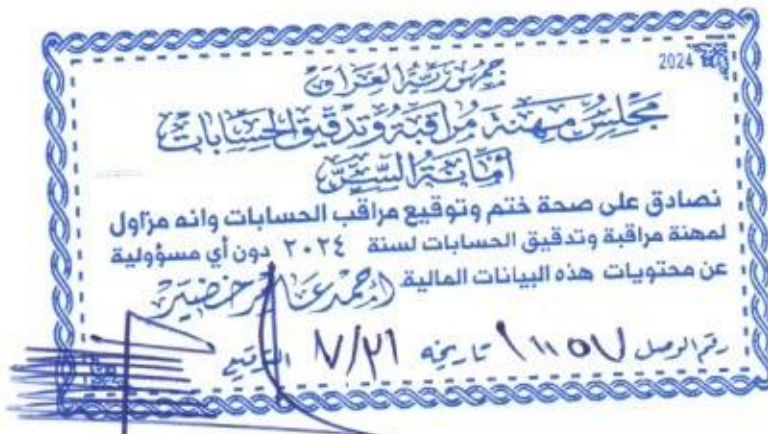 2024
جمهورية العراق
مجلس مهنة مراقبة وتدقيق الحسابات
أمانة السر
نصادق على صحة ختم وتوقيع مراقب الحسابات وانه مزاول
لمهنة مراقبة وتدقيق الحسابات لسنة ٢٠٢٤ دون أي مسؤولية
عن محتويات هذه البيانات المالية احمد عامر خضير
رقم الوصل ١١٥٧ تاريخه ٧/٢١ التوقيع